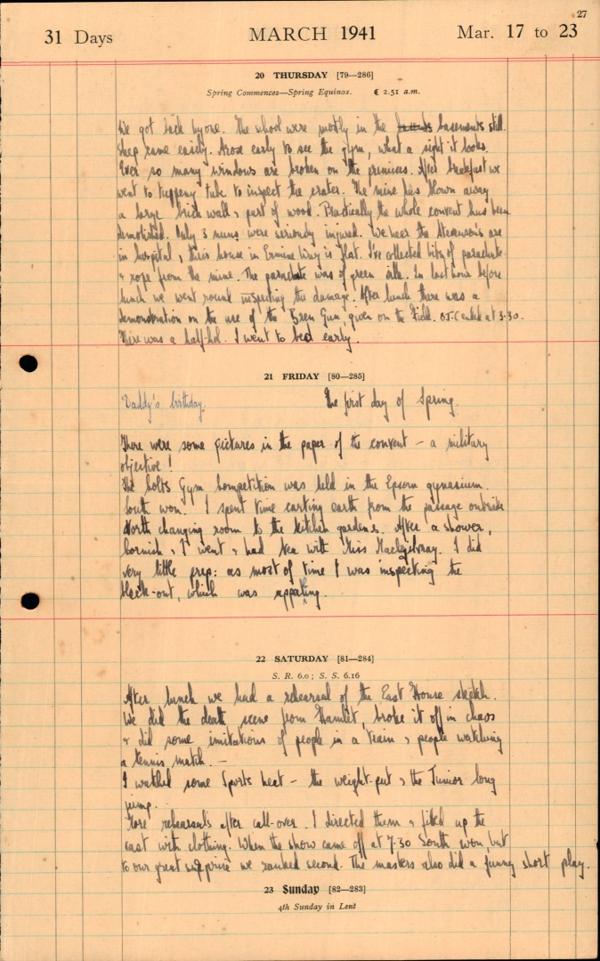 27
31 Days MARCH 1941 Mar. 17 to 23
20 THURSDAY [79—286]
Spring Commences—Spring Equinox. ☾ 2.51 a.m.
We got back by one. The school were mostly in the basements still.
Sleep came easily. Arose early to see the gym, what a sight it looks.
Ever so many windows are broken on the premises. After breakfast we
went to tuppeny tube to inspect the crater. The mine has blown away
a large brick wall & part of wood. Practically the whole convent has been
demolished. Only 3 nuns were seriously injured. We hear the
in hospital, their house in Ermine Way is flat. I've collected bits of parachute
& rope from the mine. The parachute was of green silk. In last hour before
lunch we went round inspecting the damage. After lunch there was a
demonstration on the use of the Bren Gun, given on the Field. O.T.C ended at 3.30.
There was a half-hol. I went to bed early.
21 FRIDAY [80—285]
Daddy's birthday. The first day of Spring.
There were some pictures in the paper of the convent – a military
objective!
The Colts Gym Competition was held in the Epsom gymnasium.
South won. I spent time carting earth from the passage outside
North changing room to the kitchen gardens. After a shower,
Cornish & I went & had tea with Miss I did
very little prep: as most of time I was inspecting the
black-out, which was appalling.
22 SATURDAY [81—284]
S. R. 6.0 ; S. S. 6.16
After lunch we had a rehearsal of the East House sketch.
We did the death scene from Hamlet, broke it off in chaos
& did some imitations of people in a train & people watching
a tennis match. –
I watched some Sports heat – the weight-put & the Junior long
jump.
More rehearsals after call-over. I directed them & fitted up the
cast with clothing. When the show came off at 7.30 South won, but
to our great surprise we ranked second. The masters also did a funny short play.
23 Sunday [82—283]
4th Sunday in Lent